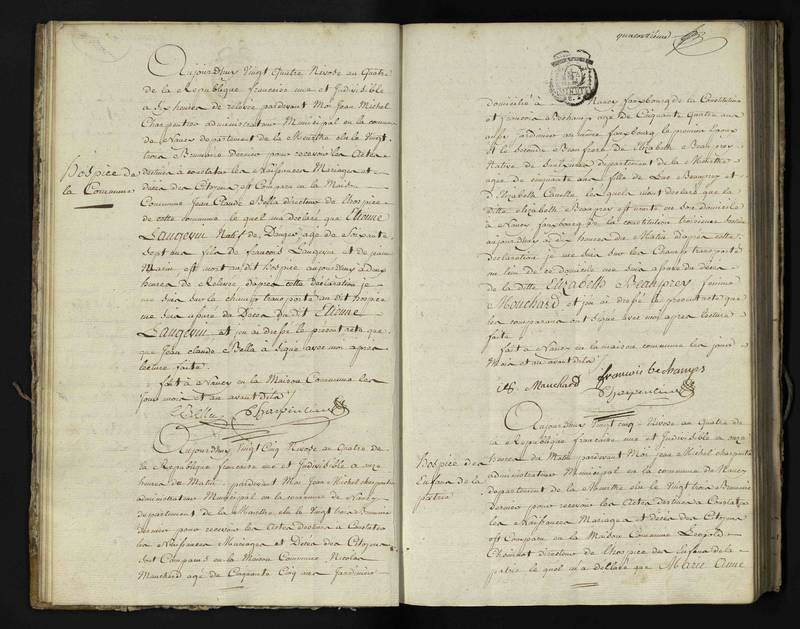 Aujourdhuy Vingt Quatre Nivose an Quatre
de la Republique francoise une et Indivisible
a Six heures de relevée pardevant Moi Jean Michel
Charpentier administrateur Municipal en la commune
de Nancy departement de la Meurthe elu le Vingt
trois Brumaire dernier pour recevoir les Actes
destinés a constater les Naissances Mariages et
Deces des Citoyens est Comparu en la Maison
Commune Jean Claude Bella directeur de L'hospice
de cette commune le quel m'a declaré que Etienne
Langevin Natif de age de Soixante
sept ans fils de francois Langevin et de jeanne
est mort au dit hospice aujourdhuy a deux
heures de Relevée, d'apres cette declaration je
me suis sur le champ transporté au dit hospice
me suis assuré du Deces du dit Etienne
Langevin et j'en ai dressé le present acte que
que Jean Claude Bella à Signé avec moi apres
lecture faite.
fait à Nancy en la Maison Commune les
Jour mois et an avant dits
Bella Charpentier
Hospice de
la Commune
Aujourdhuy Vingt Cinq Nivose an Quatre de
la Republique francoise une et Indivisible a onze
heures du Matin pardevant Moi Jean Michel charpentier
administrateur Municipal en la commune de Nancy
departement de la Meurthe elu le Vingt trois Brumaire
dernier pour recevoir les Actes destinés a Constater
les Naissances Mariages et Décès des Citoyens
sont Comparus en la Maison Commune Nicolas
Mouchard agé de Cinquante Cinq ans Jardinier
quarantieme
domicilié à Nancy fauxbourg de la Constitution
et francois Bechamp agé de Cinquante Quatre ans
aussi jardinier au même fauxbourg le premier Epoux
et le second Beaufrere de Elizabeth Beauprez
Native de departement de la Meurthe
agée de cinquante ans fille de Luc Beauprez et
d'Elizabeth les quels m'ont declaré que la
ditte elizabeth Beauprez est morte en son domicile
à Nancy fauxbourg de la constitution troisieme Section
aujourdhuy à dix heures du Matin d'après cette
declaration je me suis sur le Champ transporté
au lieu de ce domicile me suis assuré du Deces
de la ditte Elizabeth Beauprez femme
Mouchard et j'en ai dressé le present acte que
les comparans ont signé avec moi apres lecture
faite
fait à Nancy en la maison commune les jour
Mois et an avant dits
N. Mouchard francois bechamps
Charpentier
Hospice des
Enfans de la
patrie
Aujourdhuy Vingt cinq Nivose an Quatre de
la Republique francoise une et Indivisible a onze
heures du Matin pardevant Moi Jean Michel charpentier
administrateur Municipal en la commune de Nancy
departement de la Meurthe elu le Vingt trois Brumaire
dernier pour recevoir les Actes destinés a Constater
les Naissances Mariages et Deces des Citoyens
est Comparu en la Maison Commune Leopold
directeur de L'hospice des Enfans de la
patrie le quel m'a declaré que Marie Anne